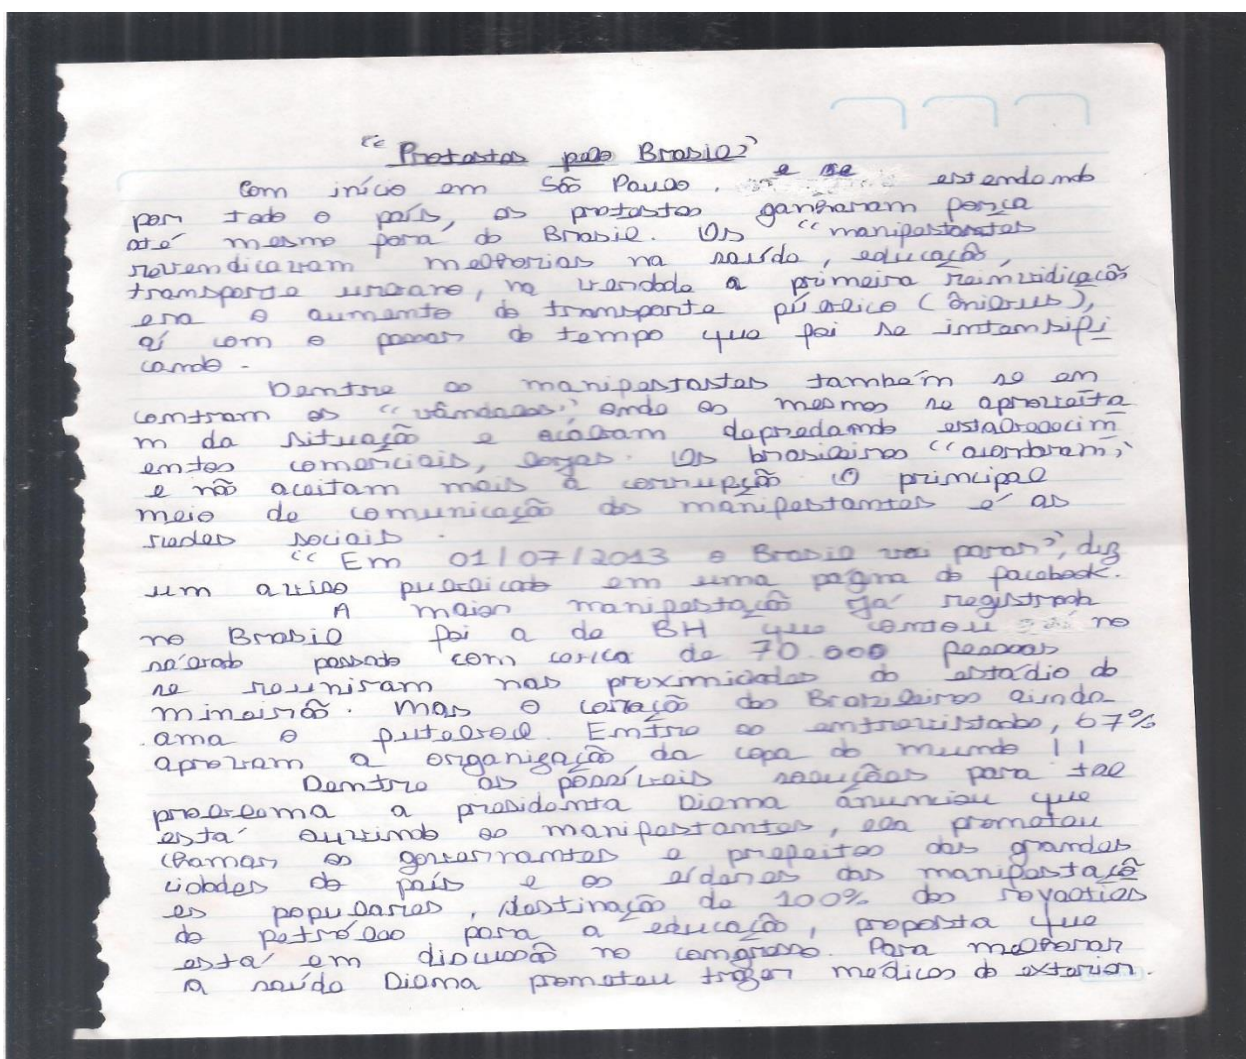 “Protestos pelo Brasil”
Com início em São Paulo, e se estendendo
por todo o país, os protestos ganharam força
até mesmo fora do Brasil. Os “manifestantes
revendicavam melhorias na saúde, educação,
transporte urbano, na verdade a primeira reinvidicação
era o aumento do transporte público (ônibus),
aí com o passar do tempo que foi se intensifi
cando.
Dentre os manifestantes também se en
contram os “vândalos” onde os mesmos se aproveita
m da situação e acabam depredando estabelecim
entos comerciais, lojas. Os brasileiros “acordaram”
e não aceitam mais a corrupção. O principal
meio de comunicação dos manifestantes é as
redes sociais.
“Em 01/07/2013 o Brasil vai parar”, diz
um aviso publicado em uma página do facebook.
A maior manifestação já registrada
no Brasil foi a de BH que contou no
sábado passado com cerca de 70.000 pessoas
se reuniram nas proximidades do estádio do
mineirão. Mas o coração dos Brasileiros ainda
ama o futebol. Entre os entrevistados, 67%
aprovam a organização da copa do mundo!!
Dentre as possíveis soluções para tal
problema a presidenta Dilma ánunciou que
está ouvindo os manifestantes, ela prometeu
chamar os governantes e prefeitos das grandes
cidades do país e os líderes das manifestaçõ
es populares, destinação de 100% dos royalties
do petróleo para a educação, proposta que
está em discussão no congresso. Para melhorar
a saúde Dilma prometeu trazer médicos do exterior.